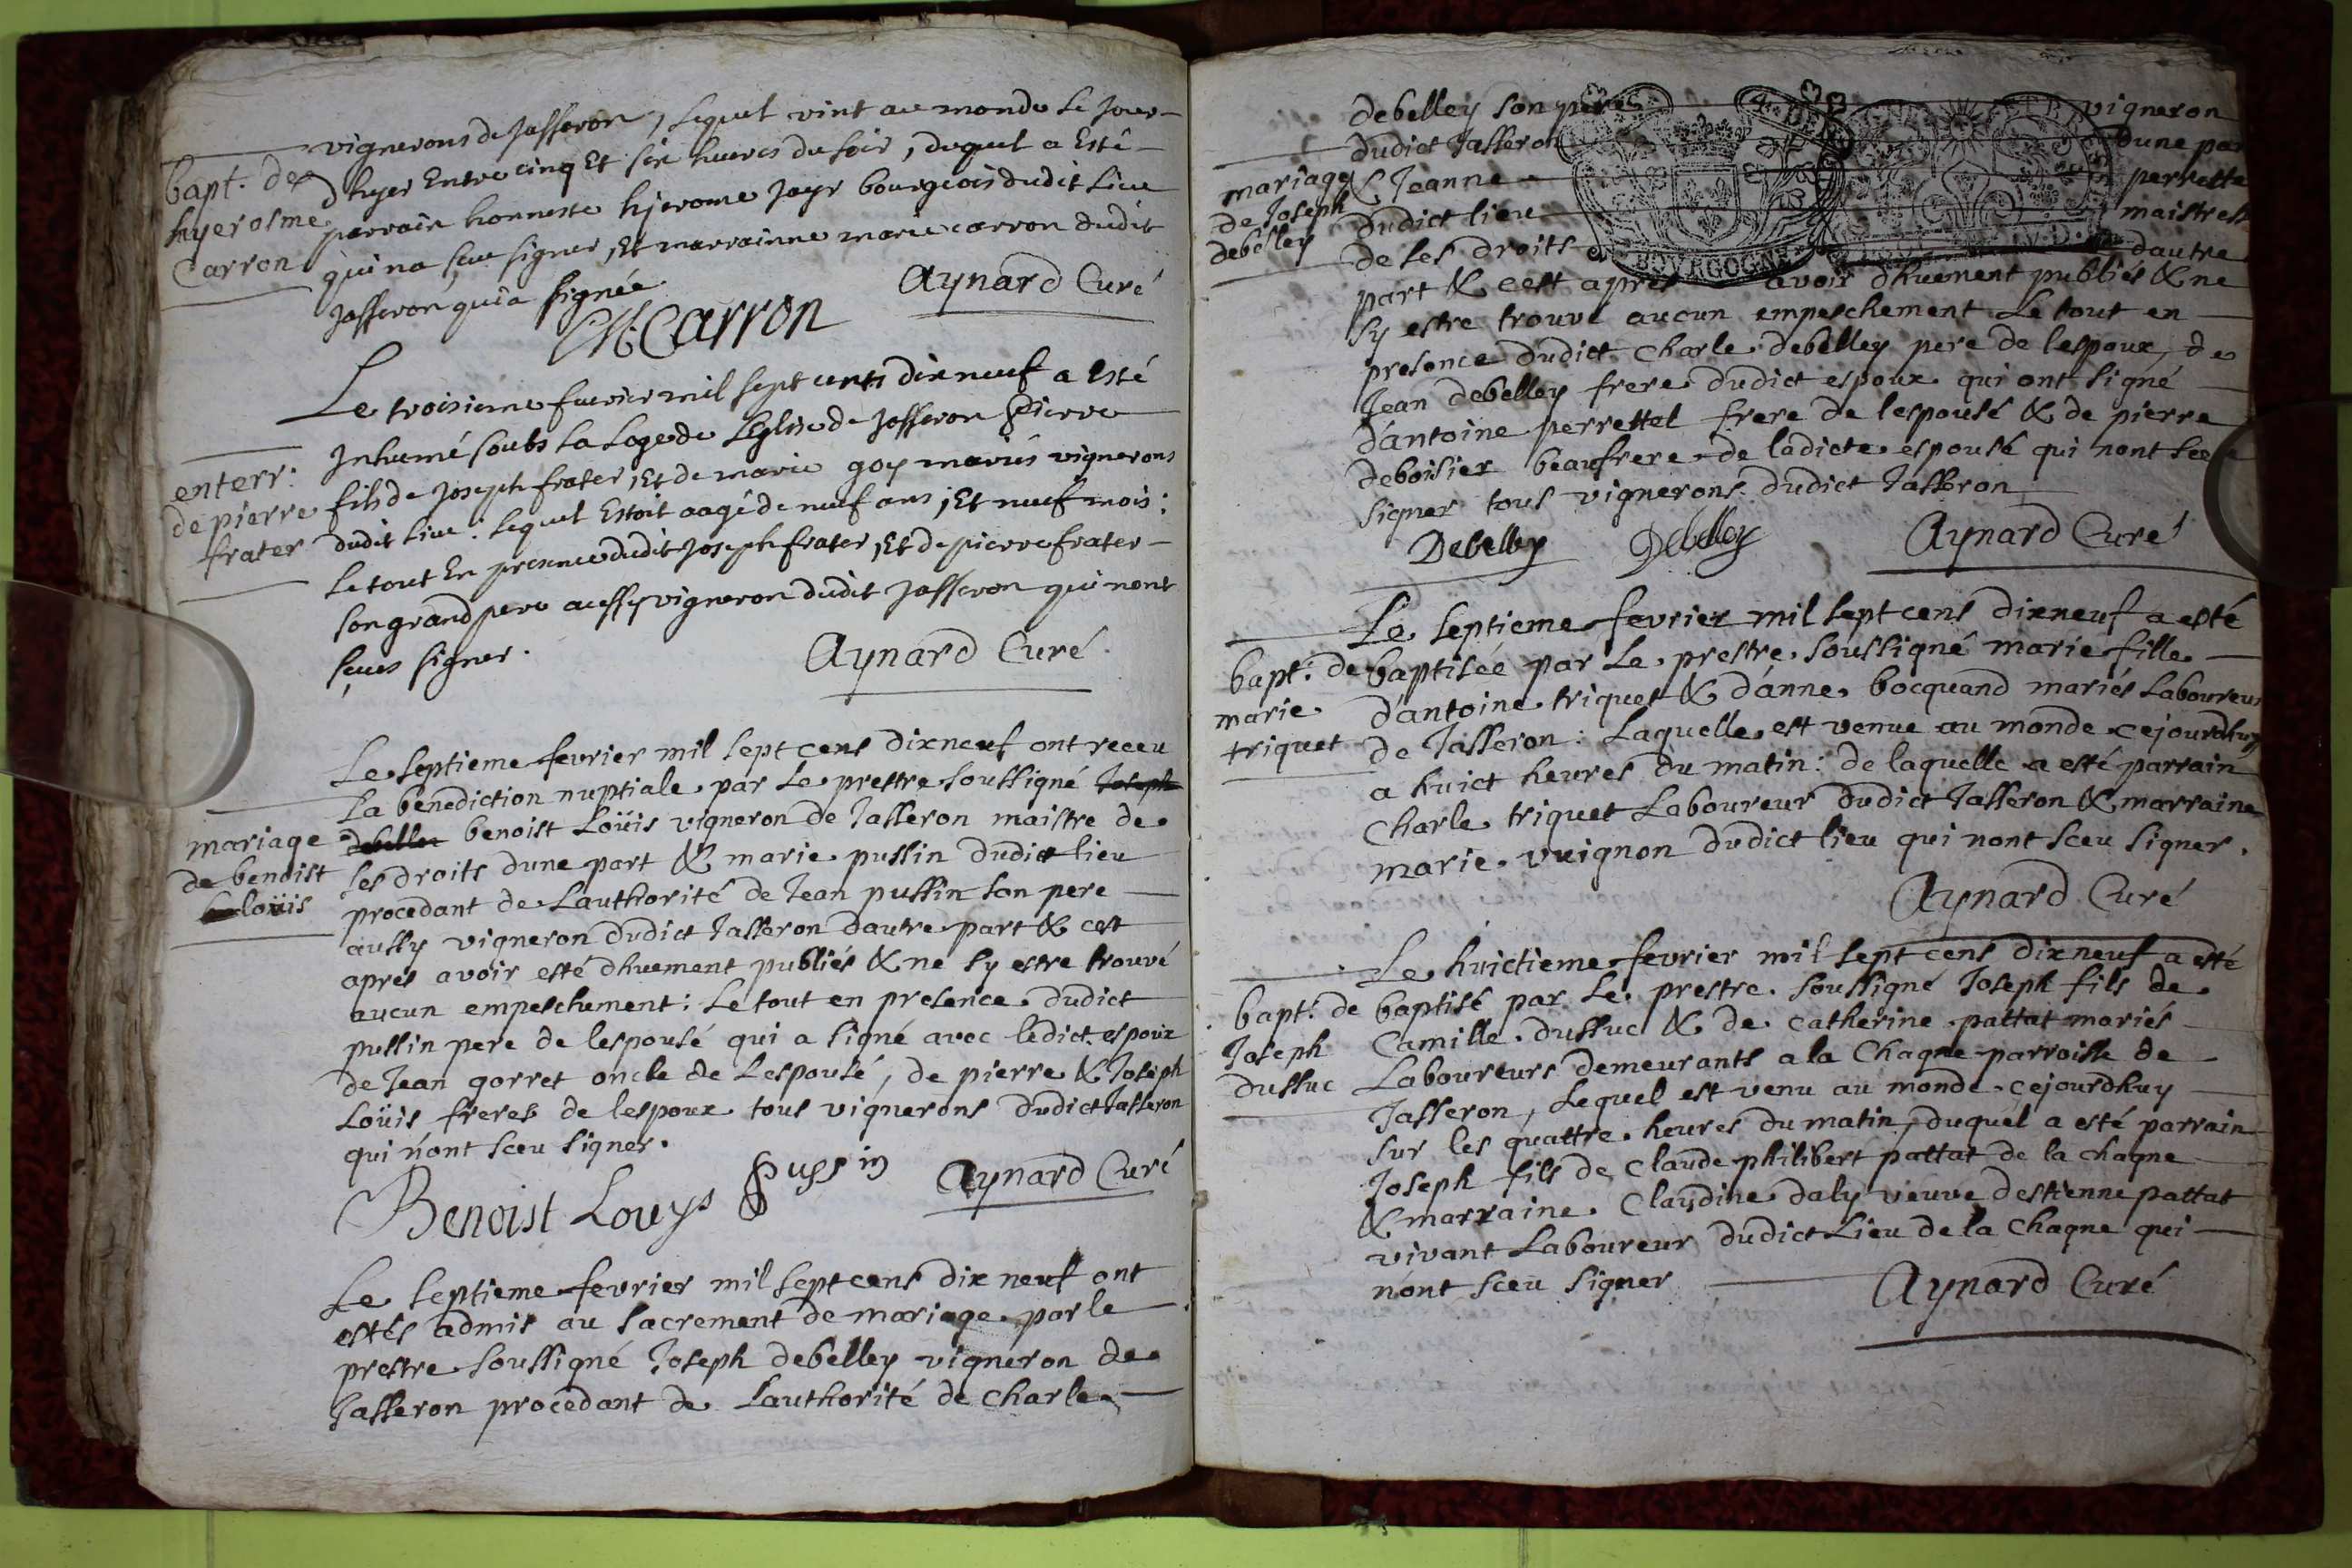 vignerons de Jasseron, lequel vint au monde le jour
bapt. de
hyerosme
Carron
d'hyer Entre cinq Et six heures du soir, duquel a Esté
parrain honneste hjerome Jayr bourgeois dudit lieu
qui na sceu signer, Et marrainne marie carron dudit
Jasseron qui a signée
M Carron
Aynard Curé
Le troisieme fuevrier mil sept cents dix neuf a Esté
enterr:
de pierre
frater
Inhumé soubs La Loge de L'Eglise de Jasseron Pierre
fils de Joseph frater, Et de marie goy mariés vignerons
dudit Lieu: Lequel Estoit aagé de neuf ans, Et neuf mois:
Le tout En presence dudit Joseph frater, Et de pierre frater
son grand pere aussy vigneron dudit Jasseron qui nont
sçeus signer.
Aynard Curé
Le septieme fevrier mil sept cens dixneuf ont receu
La benediction nuptiale par Le prestre soussigné Joseph
mariage
de benoist
loüis
debelley benoist Loüis vigneron de Jasseron maistre de
ses droits dune part & marie pussin dudict lieu
procedant de L'authorité de Jean pussin son pere
aussy vigneron dudict Jasseron dautre part & cest
apres avoir esté dhuement publiés & ne sy estre trouvé
aucun empeschement: Le tout en presence dudict
pussin pere de lespousé qui a signé avec ledict espoux
de Jean gorret oncle de Lespousé, de pierre & Joseph
Loüis freres de lespoux tous vignerons dudict Jasseron
qui n'ont sceu signer.
Benoist Louys Pussin Aynard Curé
Le septieme fevrier mil sept cens dix neuf ont
estés admis au sacrement de mariage par le
prestre soussigné Joseph debelley vigneron de
Jasseron procedant de Lauthorité de Charle
debelley son pere vigneron
dudict Jasseron dune par
mariage
de Joseph
debelley
& Jeanne perrette
dudict lieu maistress
de ses droits dautre
BOURGOGNE
part & cest apres avoir dhuement publiés & ne
sy estre trouvé aucun empeschement Le tout en
presence dudict Charle debelley pere de lespoux, de
Jean debelley frere dudict espoux qui ont signé
d'antoine perrettet frere de lespousé & de pierre
deboisier beaufrere de ladicte espousé qui nont sceu
signer tous vignerons dudict Jasseron
Debelley Debelley Aynard Curé
Le septieme fevrier mil sept cens dixneuf a esté
bapt: de
marie
triquet
baptisée par Le prestre soussigné marie fille
d'antoine triquet & d'anne bocquand mariés Laboureurs
de Jasseron: Laquelle est venue au monde cejourdhuy
a huict heures du matin: de laquelle a esté parrain
Charle triquet Laboureur dudict Jasseron & marraine
marie vuignon dudict lieu qui nont sceu signer.
Aynard Curé
Le huictieme fevrier mil sept cens dixneuf a esté
bapt: de
Joseph
dussuc
baptisé par Le prestre soussigné Joseph fils de
Camille dussuc & de catherine pattat mariés
Laboureurs demeurants a la Chagne parroisse de
Jasseron, Lequel est venu au monde cejourdhuy
sur les quattre heures du matin, duquel a esté parrain
Joseph fils de Claude philibert pattat de la chagne
& marraine Claudine daly vieuve destienne pattat
vivant Laboureur dudict Lieu de la Chagne qui
n'ont sceu signer Aynard Curé